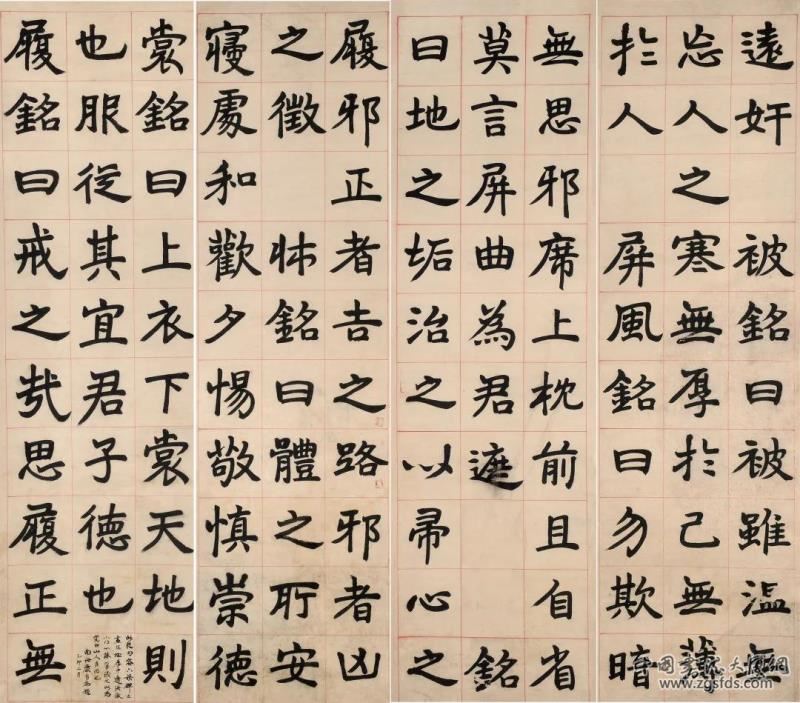 遠奸被銘曰被雖溫無
忘人之寒無厚於己無薄
於人屏風銘曰勿欺暗
無思邪席上枕前且自省
莫言屏曲為君遮銘
曰地之垢治之以帚心之
履邪正者吉之路邪者凶
之徵牀銘曰體之所安
寢處和歡夕惕敬慎崇德
裳銘曰上衣下裳天地則
也服從其宜君子德也
履銘曰戒之哉思履正無
www.zgsfds.com